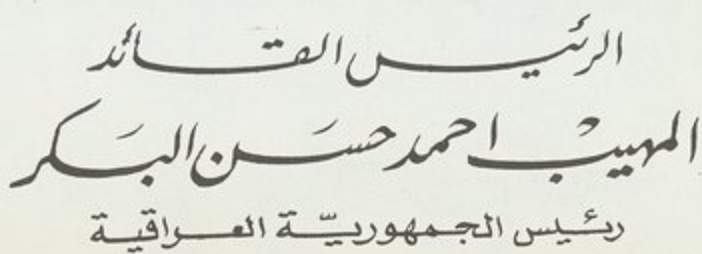 الرئيس القائد
المهيب احمد حسن البكر
رئيس الجمهورية العراقية